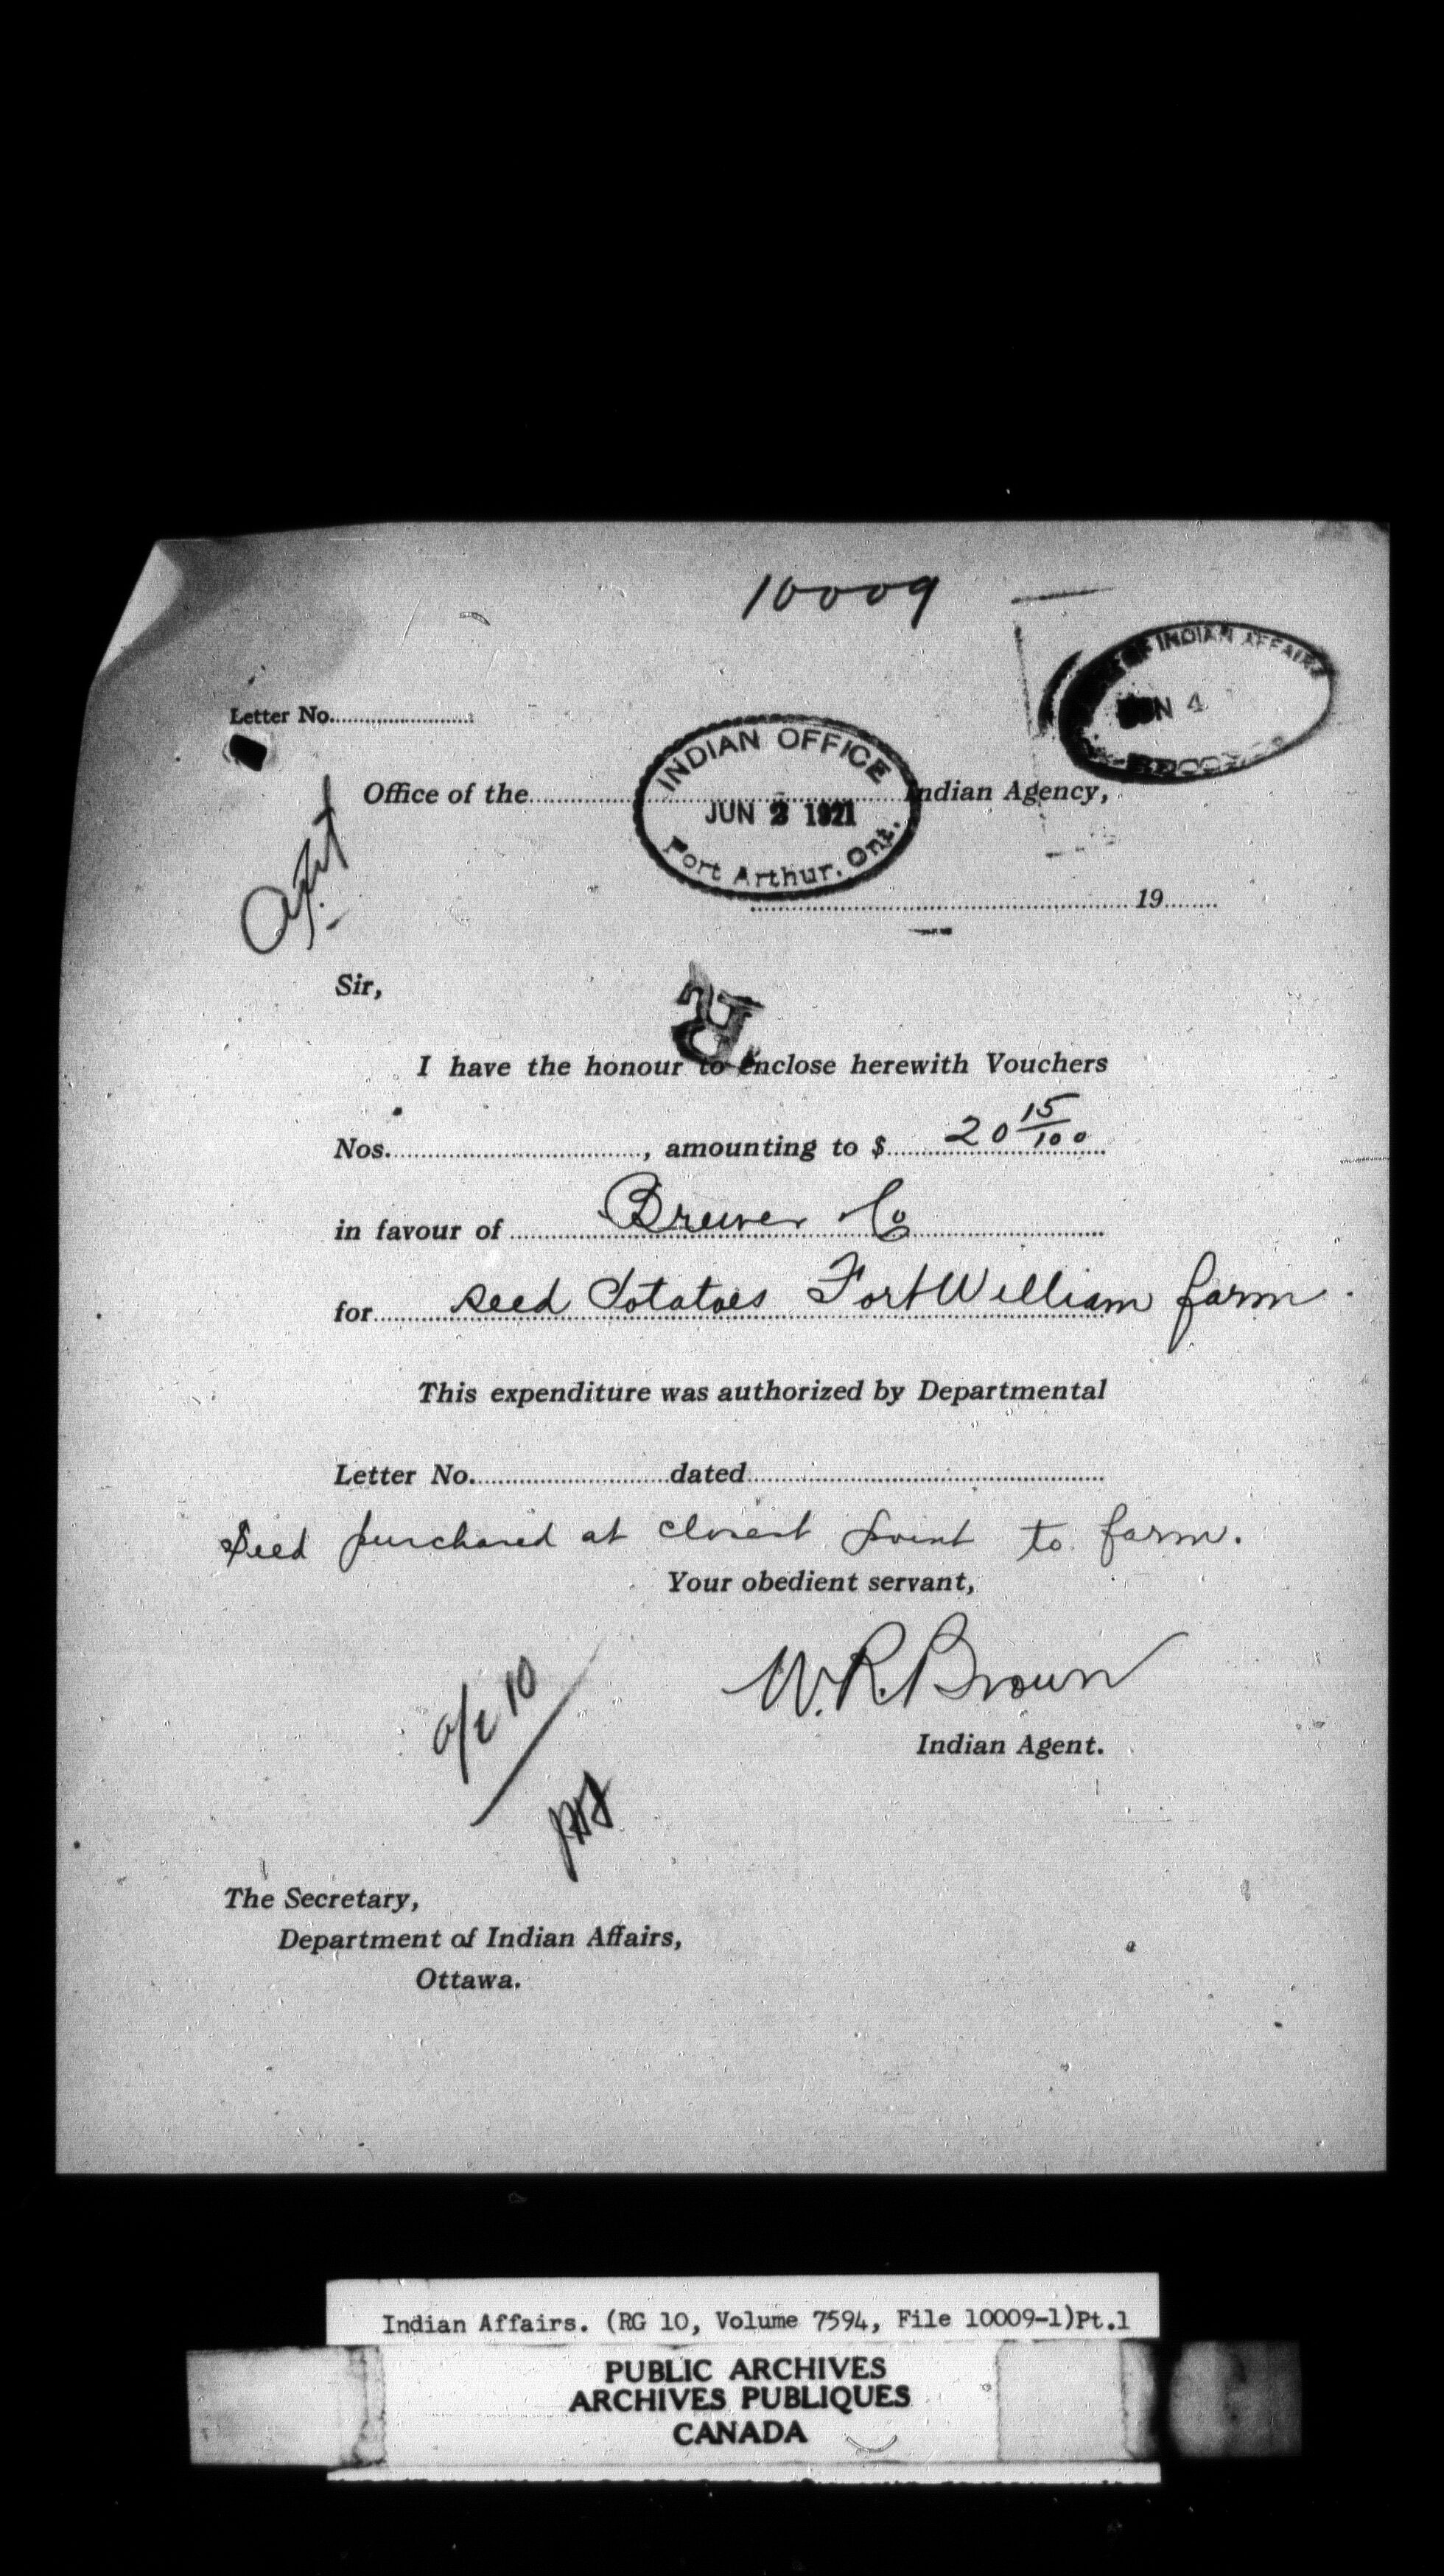 10009
OF INDIAN AFFAIRS
JUN 4
Letter No.
INDIAN OFFICE
Office of the Indian Agency,
JUN 2 1921
Port Arthur, Ont.
19
Sir,
R.
I have the honour to enclose herewith Vouchers
Nos. , amounting to $ 20 15/100
in favour of Brewer Co
for seed Potatoes Fort William farm.
This expenditure was authorized by Departmental
Letter No. dated
Seed purchased at closest point to farm.
Your obedient servant,
W.R. Brown
Indian Agent.
The Secretary,
Department of Indian Affairs,
Ottawa.
Indian Affairs. (RG 10, Volume 7594, File 10009-1)Pt.1
PUBLIC ARCHIVES
ARCHIVES PUBLIQUES
CANADA